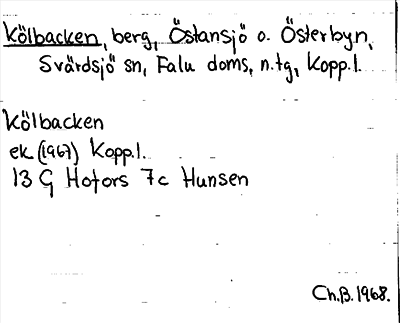 Kölbacken, berg, Östansjö o. Österbyn,
Svärdsjö sn, Falu doms. n.tg, Kopp.l.
Kölbacken
ek (1967) Kopp.l.
13 G Hofors 7c Hunsen
Ch.B. 1968.